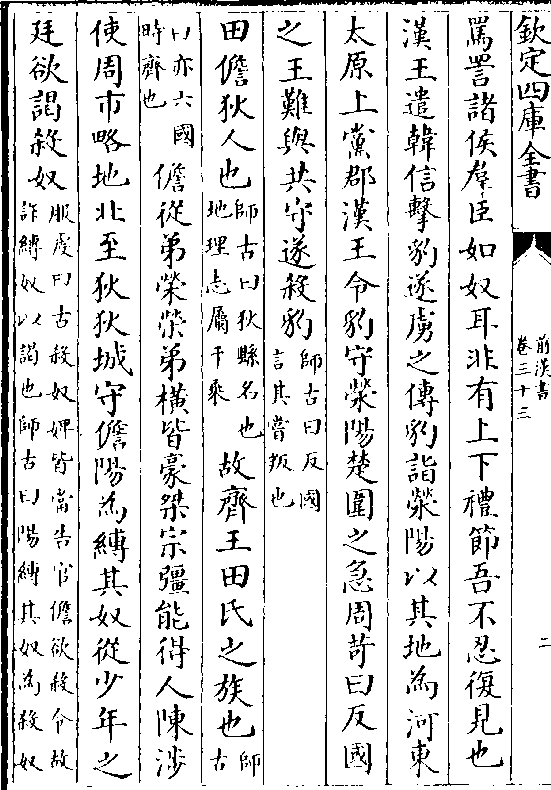 欽定四庫全書
前漢書
卷三十三
二
罵詈諸侯羣臣如奴耳非有上下禮節吾不忍復見也
漢王遣韓信擊豹遂虜之傳豹詣滎陽以其地為河東
太原上黨郡漢王令豹守滎陽楚圍之急周苛曰反國
之王難與共守遂殺豹師古曰反國言其嘗叛也
田儋狄人也師古曰狄縣名也地理志屬千乘故齊王田氏之族也師古
曰亦六國時齊也儋從弟榮榮弟橫皆豪桀宗彊能得人陳涉
使周市略地北至狄狄城守儋陽為縛其奴從少年之
廷欲謁殺奴服虔曰古殺奴婢皆當告官儋欲殺令故詐縛奴以謁也師古曰陽縛其奴為殺奴